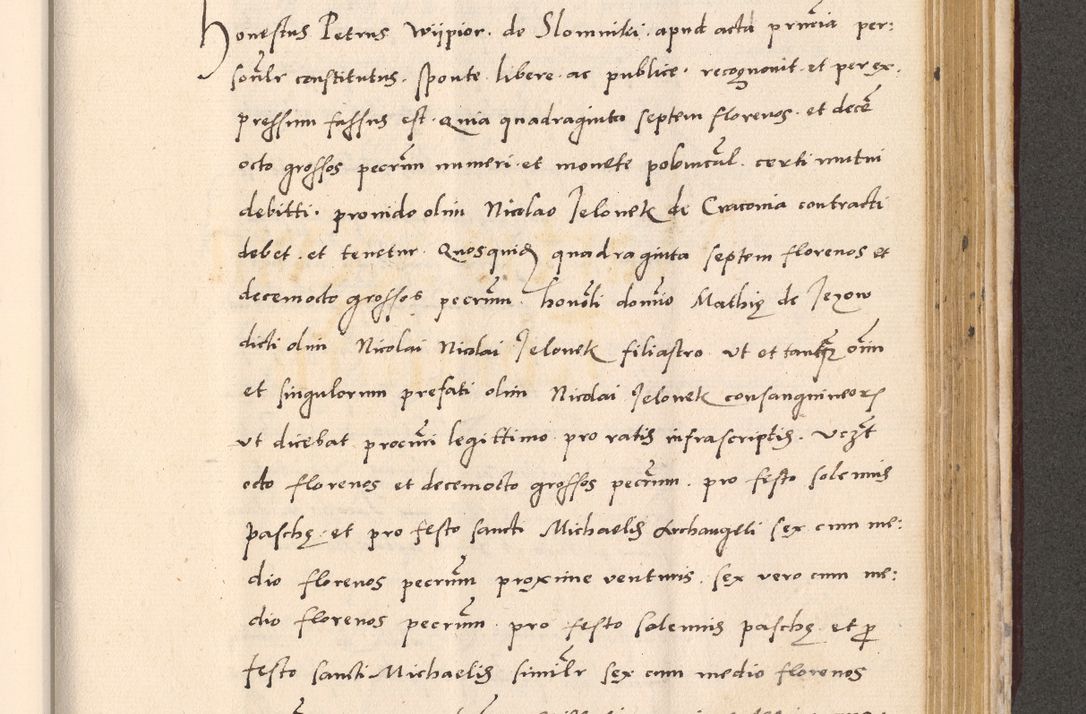 Honestus Petrus Wijpior. de Slomniki. apud acta prñcia per:
soñlr constitutus. sponte. libere. ac publice. recognouit. et per ex.
pressum fassus est. Quia quadraginta septem florenos. et decẽ
octo grossos pecũm numeri. et monete polonical. certi mutui
debitti. prouido olim Nicolao Jelonek de Cracouia contracti
debet. et tenetur. Quosquidẽ quadraginta septem florenos et
decemocto grossos pecũm. honõli domĩo Mathię de Jezow
dicti olim Nicolai Nicolai Jelonek filiastro. ut et tanq̃ oĩm
et singulorum prefati olim Nicolai Jelonek consanguineoꝝ
ut dicebat procũri legittimo. pro ratis infrascriptis. Vczt
octo florenos et decemocto grossos pecũm. pro festo solemnis
paschę. et pro festo sancti Michaelis Archangeli sex cum me:
dio florenos pecũm proxime venturis. sex vero cum me:
dio florenos pecũm. pro festo solemnis paschę. et ꝓ
festo sancti Michaelis similr sex cum medio florenos